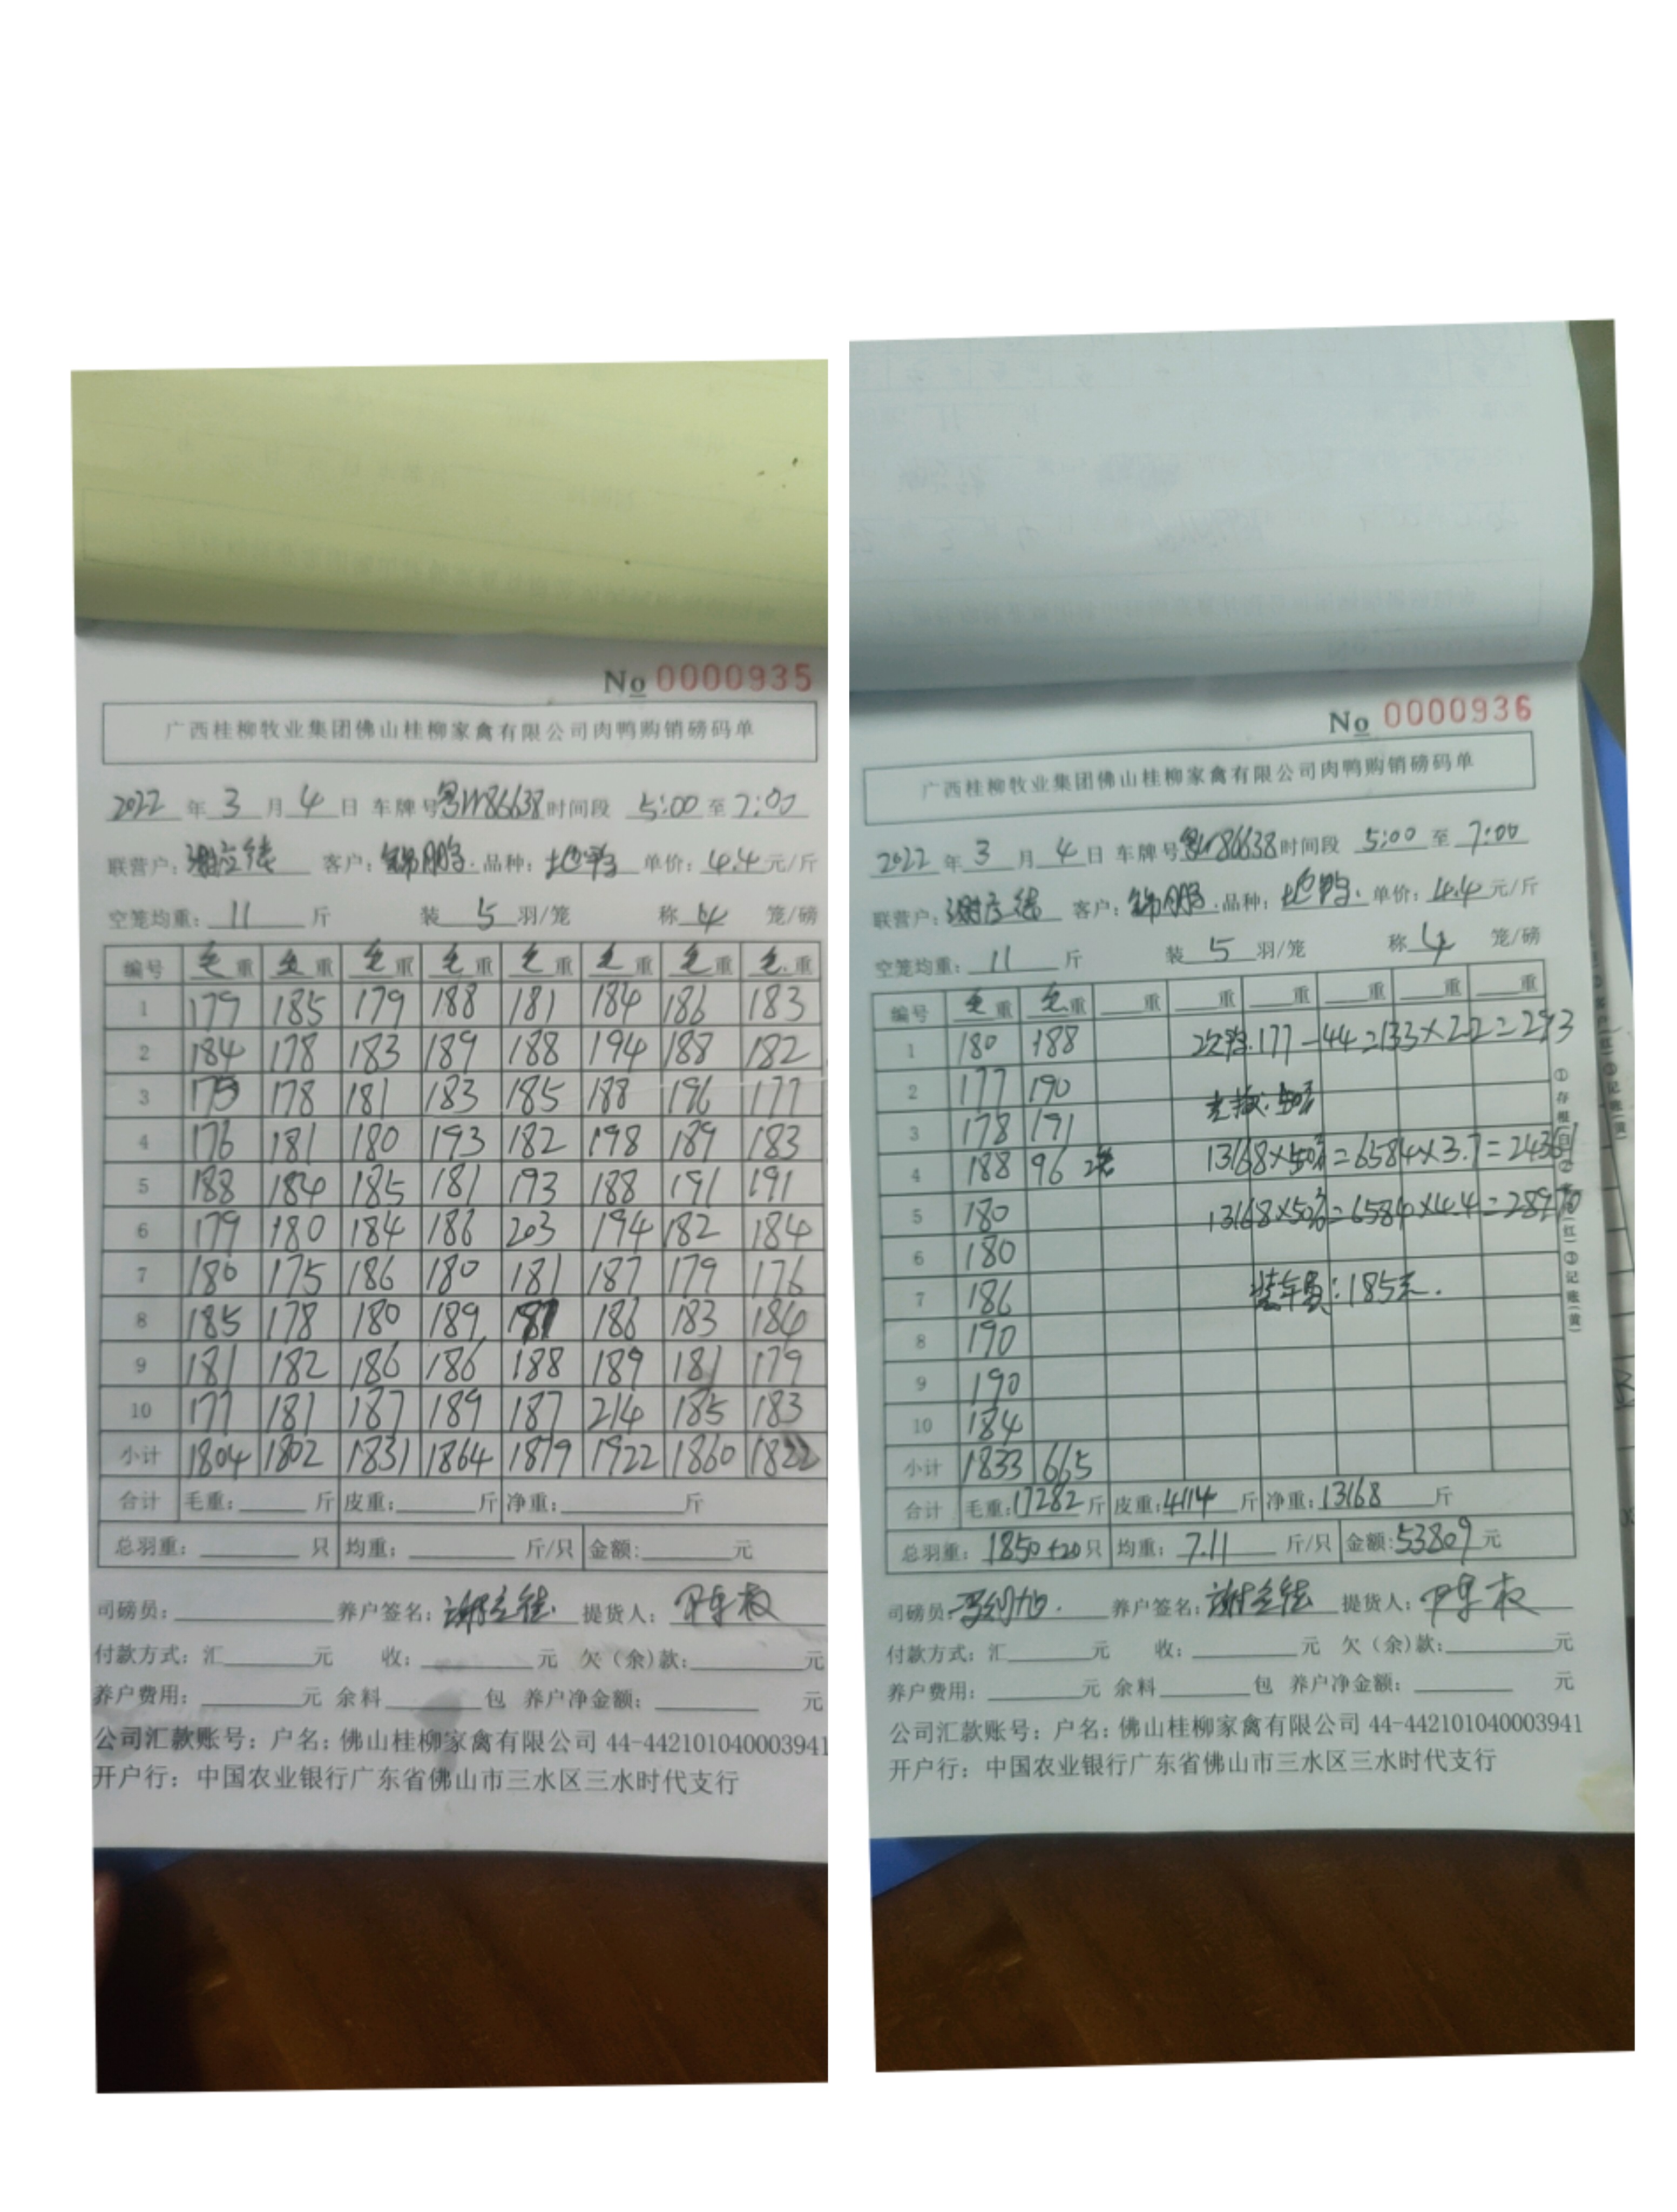 No 0000935
广西桂柳牧业集团佛山桂柳家禽有限公司肉鸭购销磅码单
2022 年 3 月 4 日 车牌号 粤W86638 时间段 5:00 至 7:00
联营户: 客户: 锦鹏 品种: 单价: 4.4 元/斤
空笼均重: 11 斤 装 5 羽/笼 称 4 笼/磅
编号 毛重 毛重 毛重 毛重 毛重 毛重 毛重 毛重
1 179 185 179 188 181 184 186 183
2 184 178 183 189 188 194 188 182
3 175 178 181 183 185 188 196 177
4 176 181 180 193 182 198 189 183
5 188 184 185 181 193 188 191 191
6 179 180 184 186 203 194 182 184
7 180 175 186 180 181 187 179 176
8 185 178 180 189 186 183 184
9 181 182 186 186 188 189 181 179
10 177 181 187 189 187 214 185 183
小计 1804 1802 1831 1864 1879 1922 1860 1822
合计 毛重: 斤 皮重: 斤 净重: 斤
总羽重: 只 均重: 斤/只 金额: 元
司磅员: 养户签名: 提货人:
付款方式: 汇 元 收: 元 欠(余)款: 元
养户费用: 元 余料 包 养户净金额: 元
公司汇款账号: 户名: 佛山桂柳家禽有限公司 44-442101040003941
开户行: 中国农业银行广东省佛山市三水区三水时代支行
No 0000936
广西桂柳牧业集团佛山桂柳家禽有限公司肉鸭购销磅码单
2022 年 3 月 4 日 车牌号 粤W86638 时间段 5:00 至 7:00
联营户: 客户: 锦鹏 品种: 单价: 4.4 元/斤
空笼均重: 11 斤 装 5 羽/笼 称 4 笼/磅
编号 毛重 毛重 重 重 重 重 重 重
1 180 188 次鸭: 177-44=133×2.2=293
2 177 190 50%
3 178 191
4 188 96 2笼 13168×50%=6584×3.7=24361
5 180 13168×50%=6584×4.4=28970
6 180
7 186 装车员: 185元.
8 190
9 190
10 184
小计 1833 665
合计 毛重: 17282 斤 皮重: 4114 斤 净重: 13168 斤
总羽重: 1850+20 只 均重: 7.11 斤/只 金额: 53809 元
司磅员: 养户签名: 提货人:
付款方式: 汇 元 收: 元 欠(余)款: 元
养户费用: 元 余料 包 养户净金额: 元
公司汇款账号: 户名: 佛山桂柳家禽有限公司 44-442101040003941
开户行: 中国农业银行广东省佛山市三水区三水时代支行
①存根(白)②(红)③记账(黄)